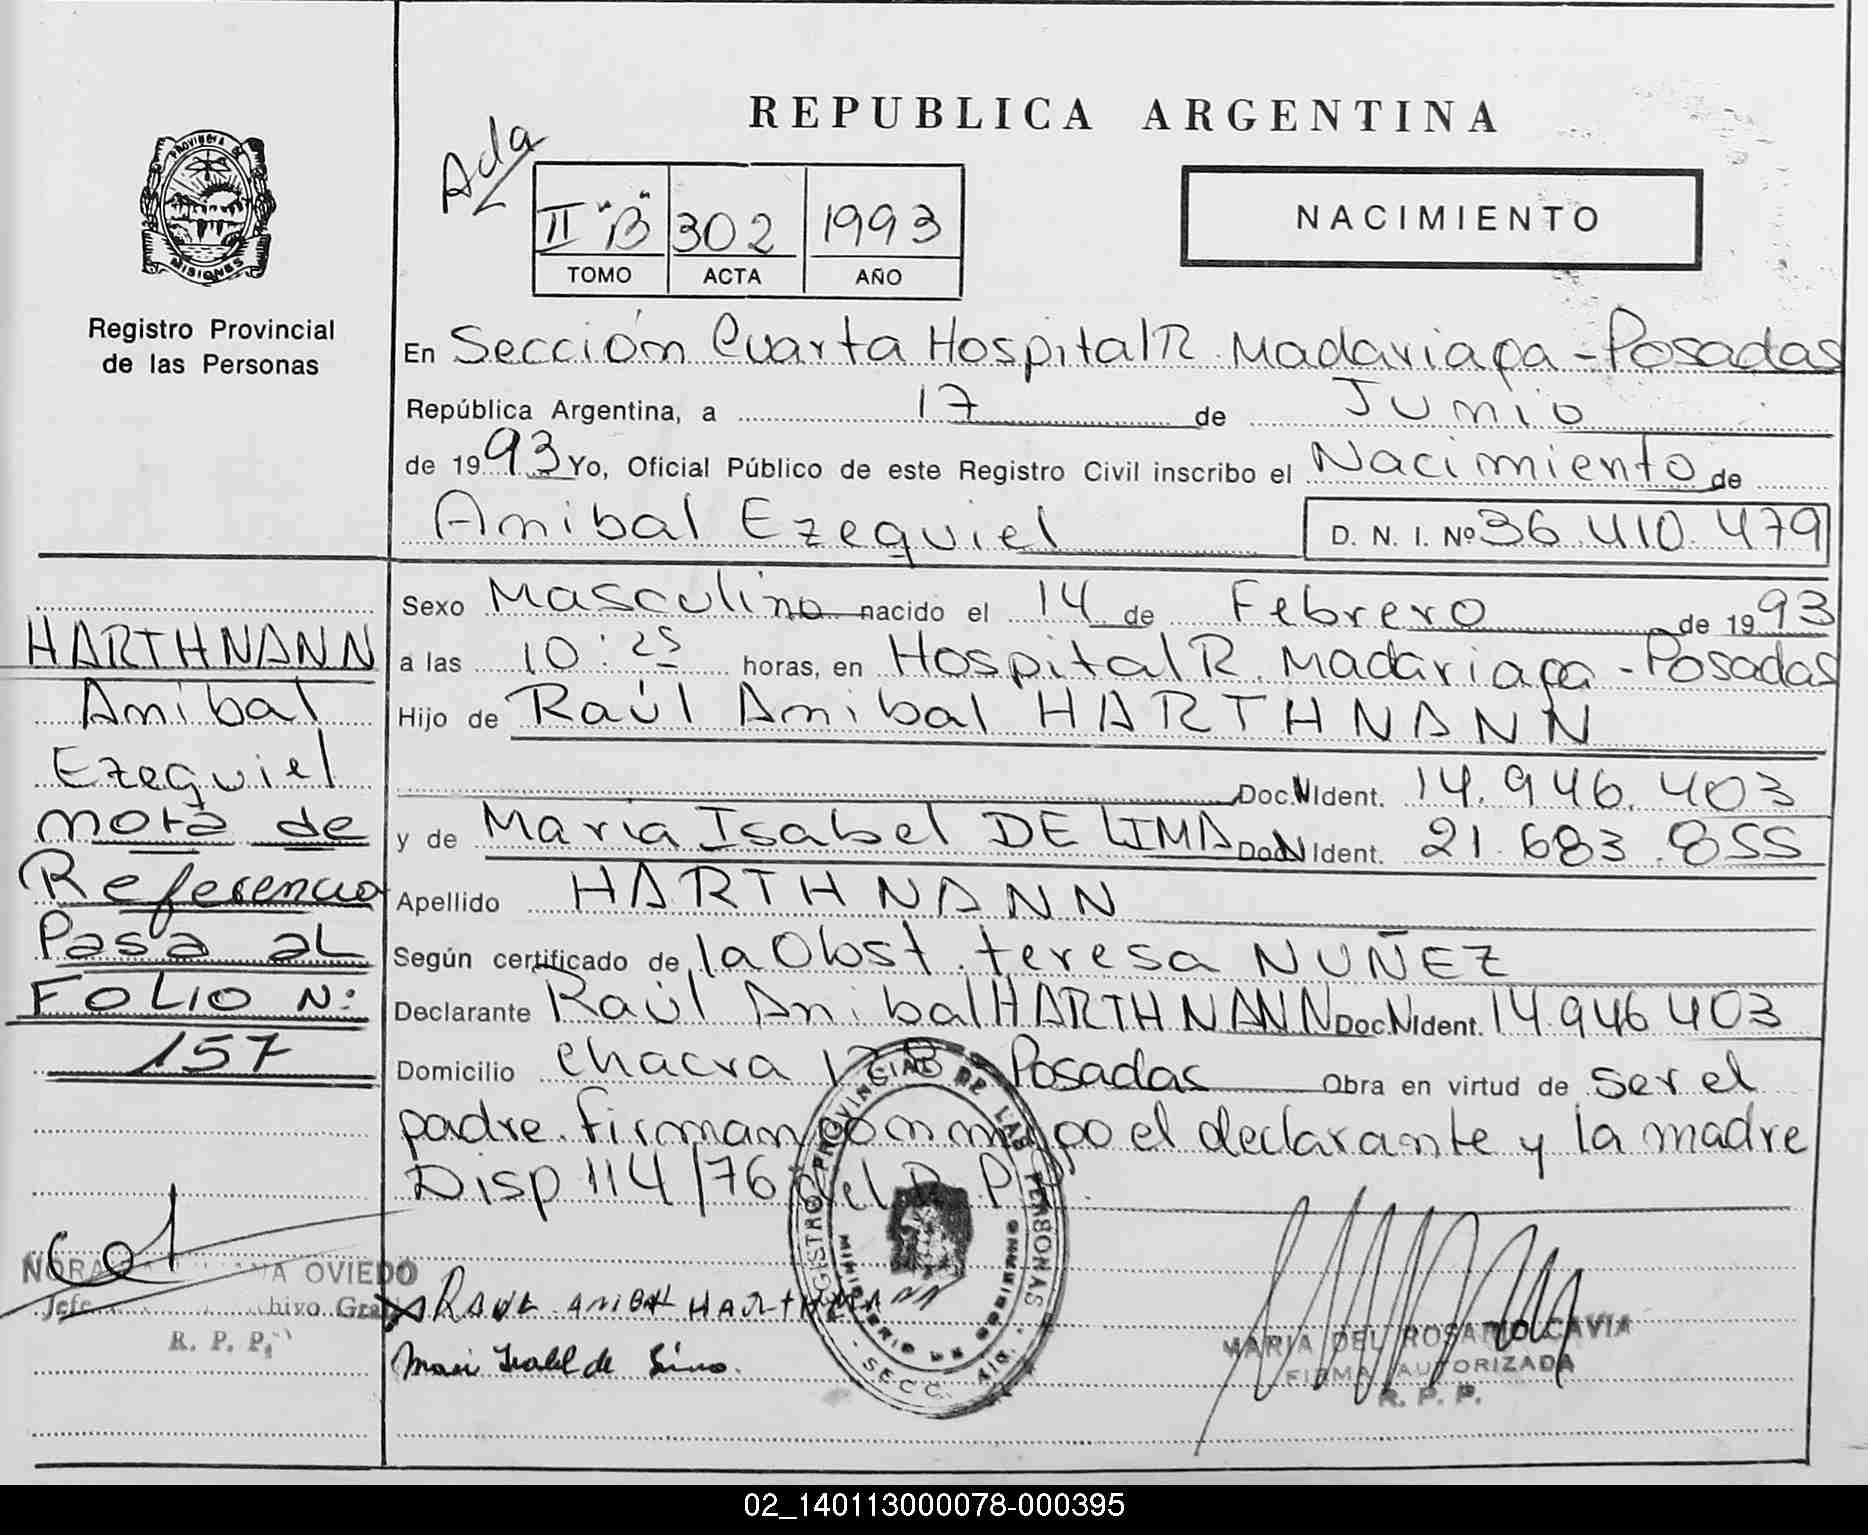 REPUBLICA ARGENTINA
Ada
PROVINCIA DE
MISIONES
Registro Provincial
de las Personas
II "B" 302 1993
TOMO ACTA AÑO
NACIMIENTO
En Sección Cuarta Hospital R. Madariaga - Posadas
República Argentina, a 17 de Junio
de 1993 Yo, Oficial Público de este Registro Civil inscribo el Nacimiento de
Anibal Ezequiel D. N. I. Nº 36.410.479
Sexo Masculino nacido el 14 de Febrero de 1993
a las 10:25 horas, en Hospital R. Madariaga - Posadas
Hijo de Raúl Anibal HARTHNANN
Doc.N Ident. 14.946.403
y de Maria Isabel DE LIMA Doc.N Ident. 21.683.855
Apellido HARTHNANN
Según certificado de la Obst. teresa NUÑEZ
Declarante Raúl Anibal HARTHNANN Doc.N Ident. 14.946.403
Domicilio chacra Posadas Obra en virtud de ser el
padre. Firman conmigo el declarante y la madre
Disp 114/76 del R.P.P.
HARTHNANN
Anibal
Ezequiel
nota de
Referencia
Pasa al
FOLIO N:
157
NORA OVIEDO
Jefe
R. P. P.
Isabel de Lima.
REGISTRO PROVINCIAL DE LAS PERSONAS
MINISTERIO DE GOBIERNO
- SECC. 4ta. -
MARIA DEL ROSARIO CAVIA
FIRMA AUTORIZADA
R. P. P.
02_140113000078-000395